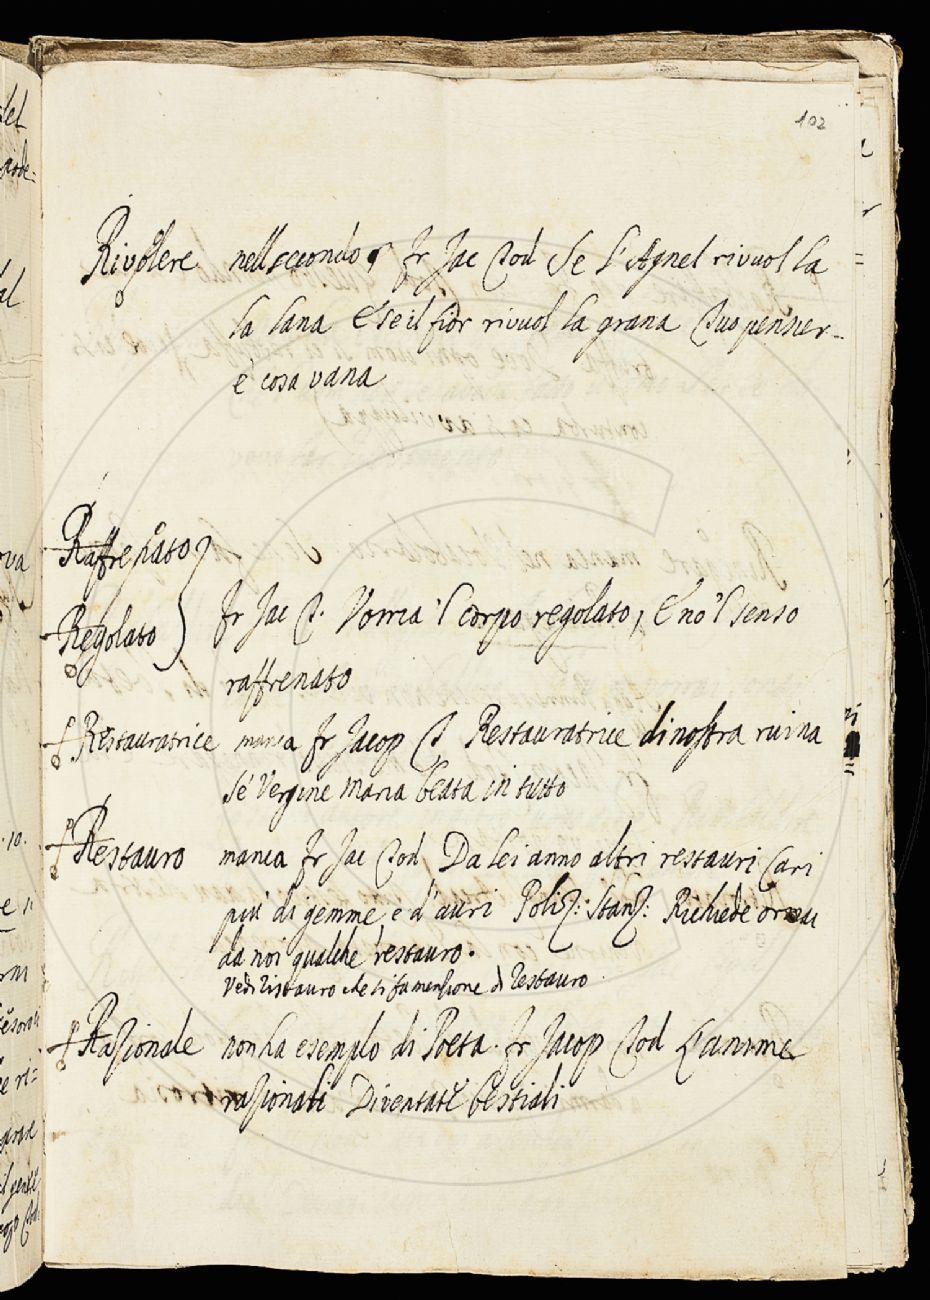 102
Rivolere nell secondo § fr Jac Tod Se l'Agnel rivuol la
la lana E se il fior rivuol la grana Tuo penser-
è cosa vana
Raffrenato
Regolato fr Jac T. Vorria 'l corpo regolato, E no 'l senso
raffrenato
Restauratrice manca fr Jacop T Restauratrice di nostra ruina
Se' Vergine Maria beata in tutto
Restauro manca fr Jac Tod Da lei anno altri restauri Cari
più di gemme e d'auri Poliz: Stanz: Richiede ormai
da noi qualche restauro.
Vedi Ristauro che si fa menzione di Restauro
Razionale non ha esemplo di Poeta. fr Jacop Tod L'anime
razionali Diventate bestiali